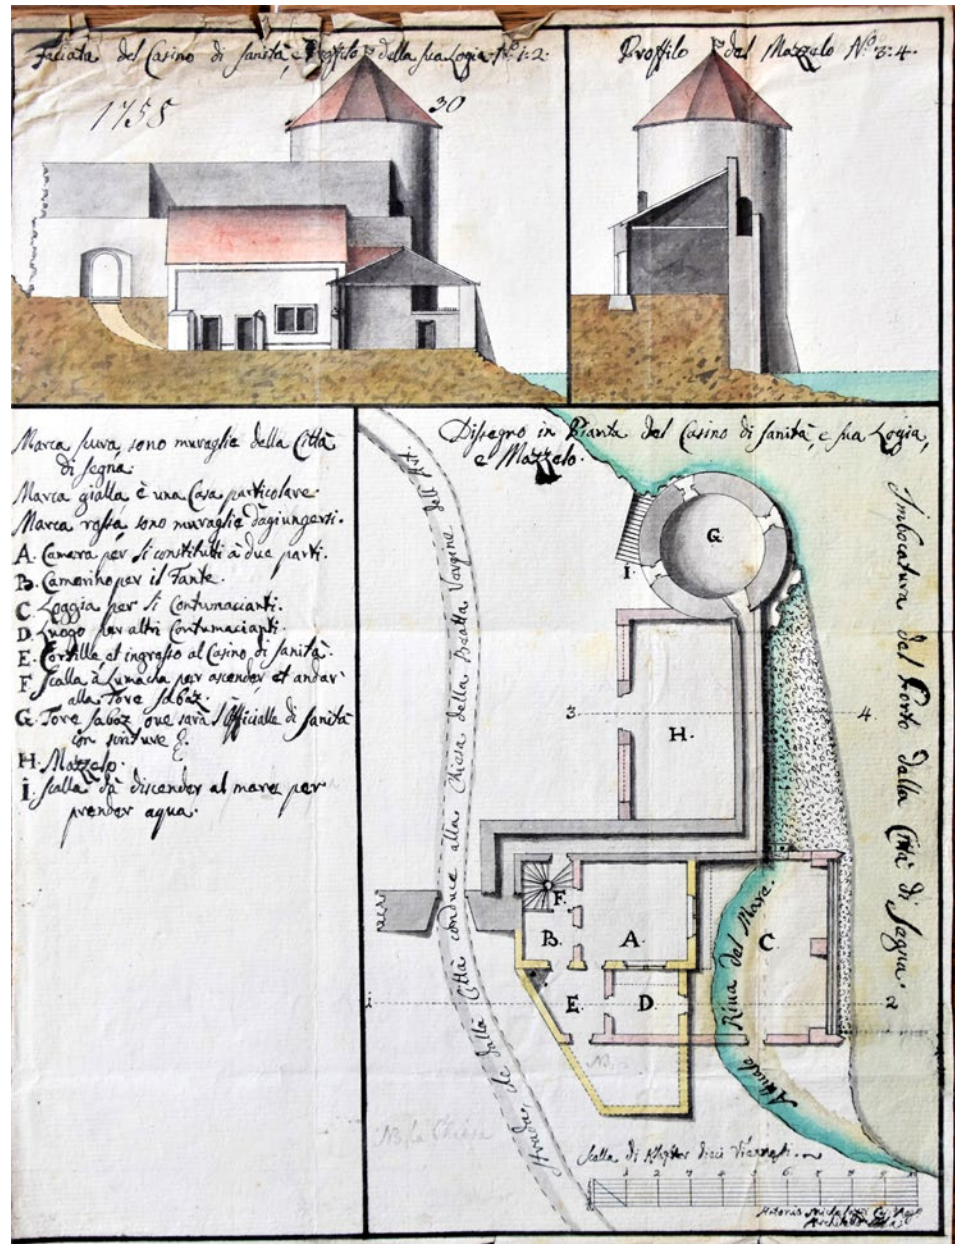 Faciata del Casino di sanità, e Proffilo della sua Logia Nº 1:2:
1758
30
Proffilo del Mazzelo Nº 3:4.
Marca scura, sono muraglie della Città
di Segna.
Marca gialla, è una Casa particolare.
Marca rossa, sono muraglie d'agiungersi.
A. Camera per li constituti à due parti.
B. Camorino per il Fante.
C. Loggia per li Contumacianti.
D. Luogo per altri Contumacianti.
E. Cortille et ingresso al Casino di sanità.
F. Scalla à Lumacha per ascender, et andar
alla Tore Sabaz.
G. Tore Sabaz, ove sarà l'Officialle di Sanità
con scriture
H. Mazzelo.
I. Scalla dà discender al mare per
prender aqua.
Dissegno in Pianta del Casino di sanità, e sua Logia,
e Mazzelo.
Imbocatura del Porto dalla Città di Segna.
Strada, che dalla Città conduce alla Chiesa della Beatta Vergine dell'
G.
I.
3
4.
H.
F.
B.
A.
C.
E.
D.
1
2
Riva del Mare.
NB la Chiesa
Scalla di Klafter dieci Viennesi.
1 2 3 4 5 6 7 8 9
Antonio
Architetto